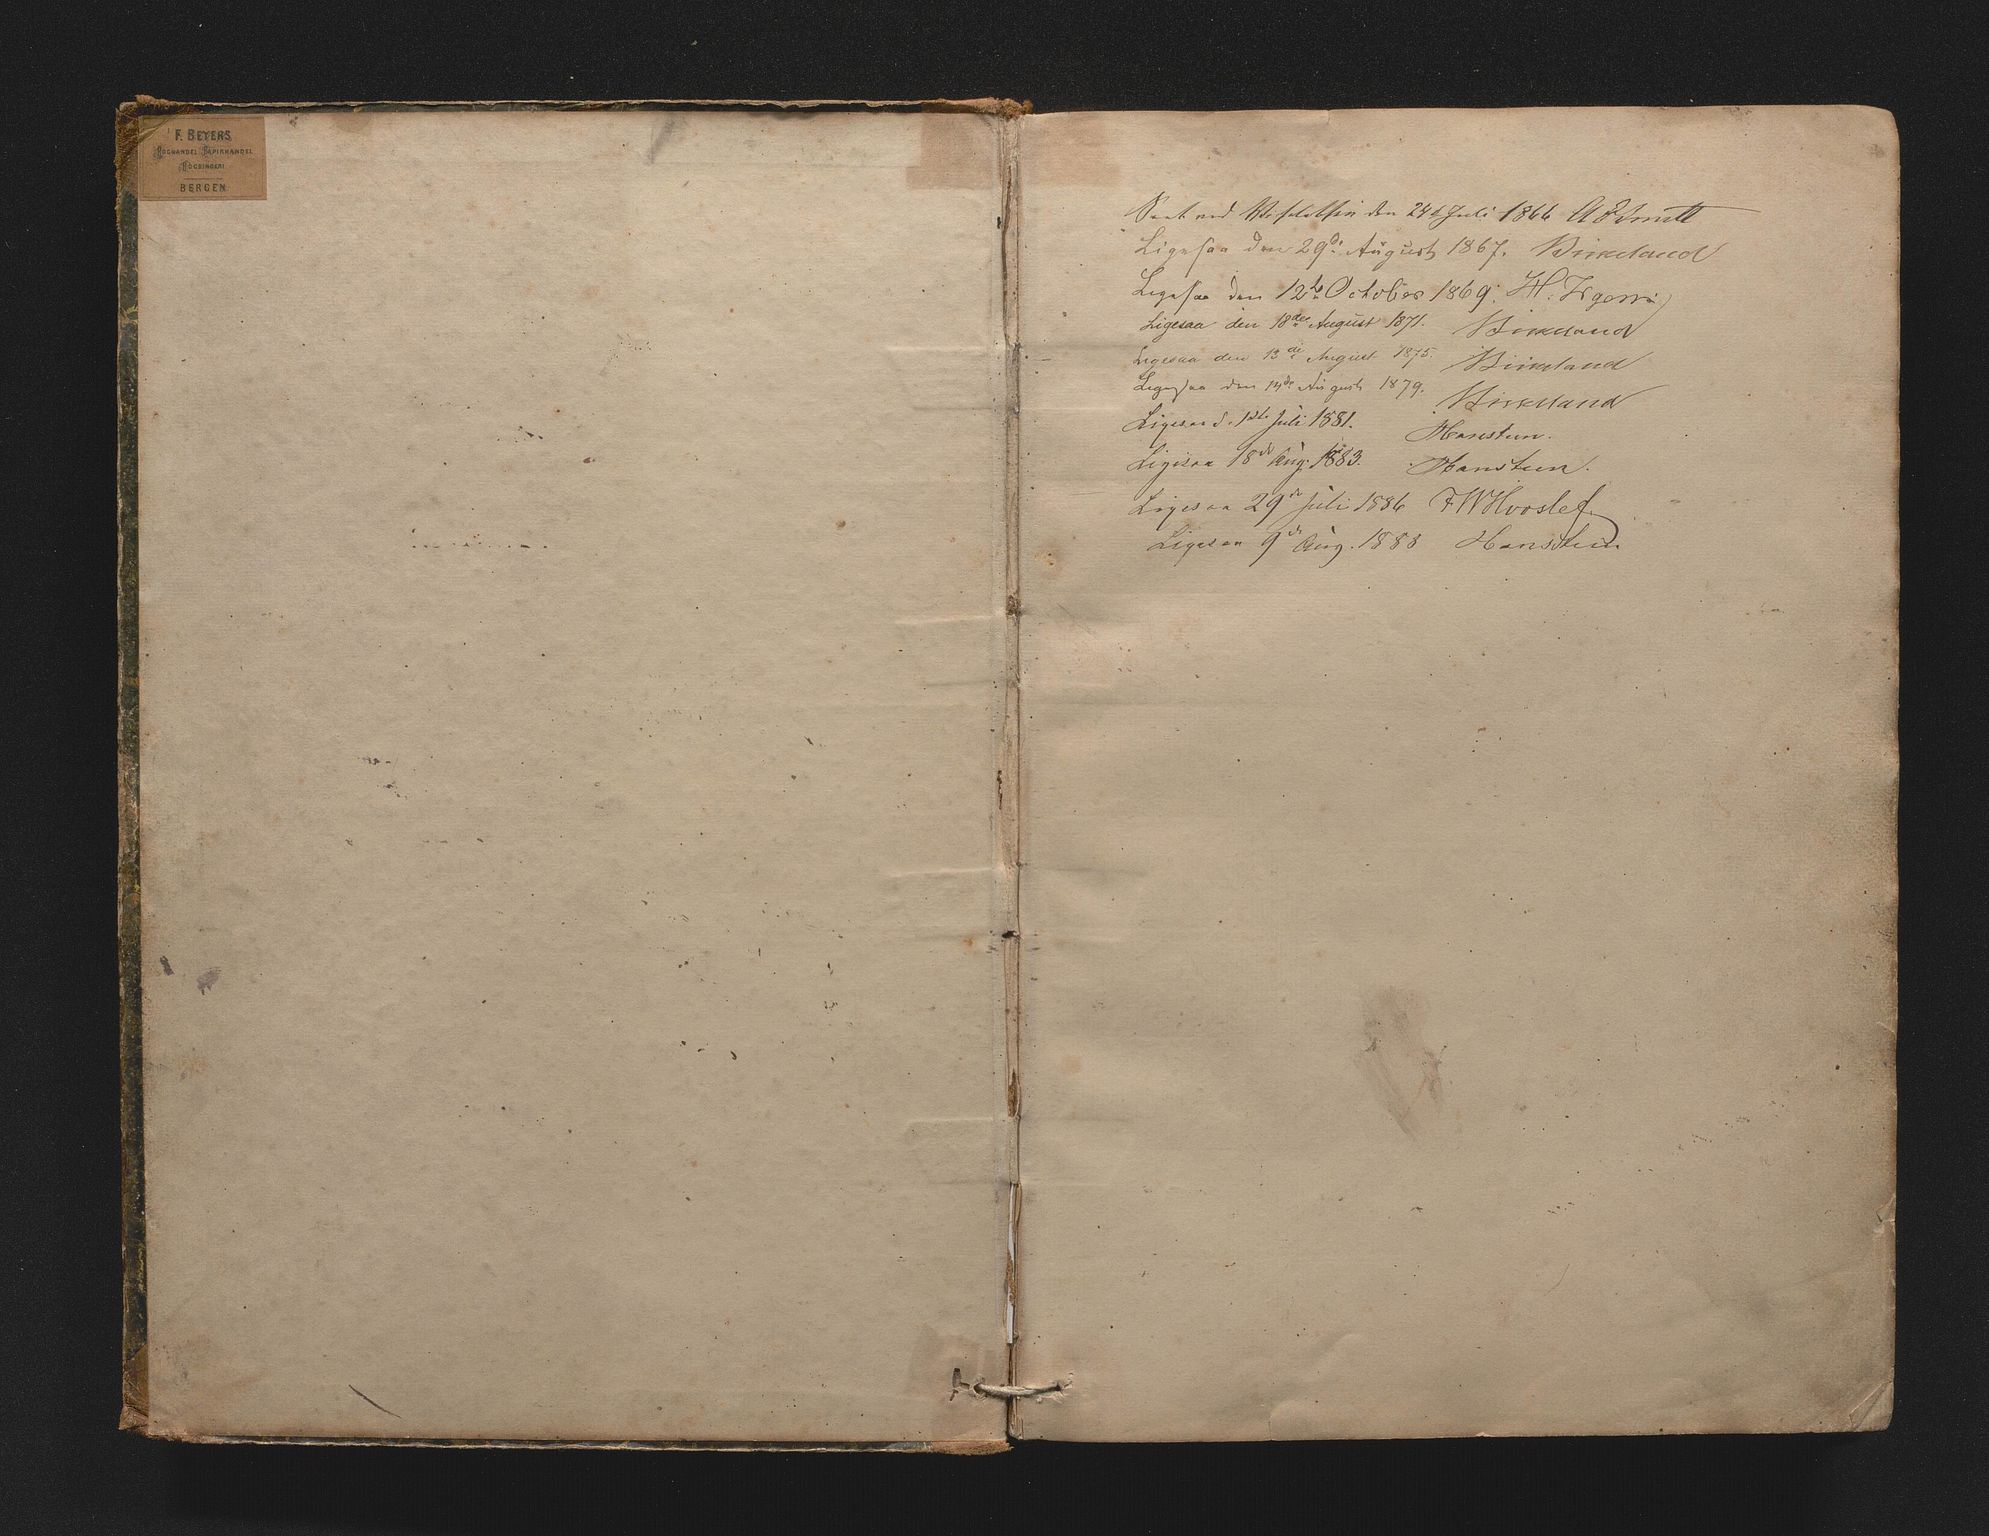 F. BEYERS
BOGHANDEL PAPIRHANDEL
BOGBINDERI
BERGEN
Seet ved Visitatsen den 24de Juli 1866
Ligesaa den 29de August 1867. Birkeland
Ligesaa den 12te October 1869. H.
Ligesaa den 18de August 1871. Birkeland
Ligesaa den 13de August 1875. Birkeland
Ligesaa den August 1879. Birkeland
Ligesaa d. 1ste Juli 1881. Hansteen.
Ligesaa 18de Aug. 1883. Hansteen.
Ligesaa 29de Juli 1886 FWHvoslef.
Ligesaa 9de Aug. 1888 Hansteen